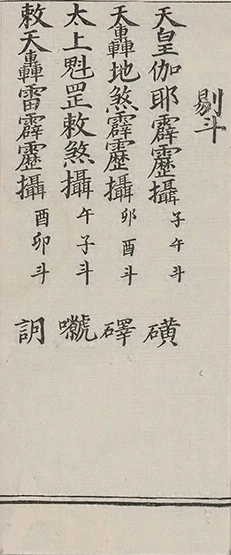 剔斗
天皇伽耶霹靂攝子午斗 磺
天轟地煞霹靂攝卯酉斗 礋
太上魁罡敕煞攝午子斗 嚱
敕天轟雷霹靂攝酉卯斗 詗